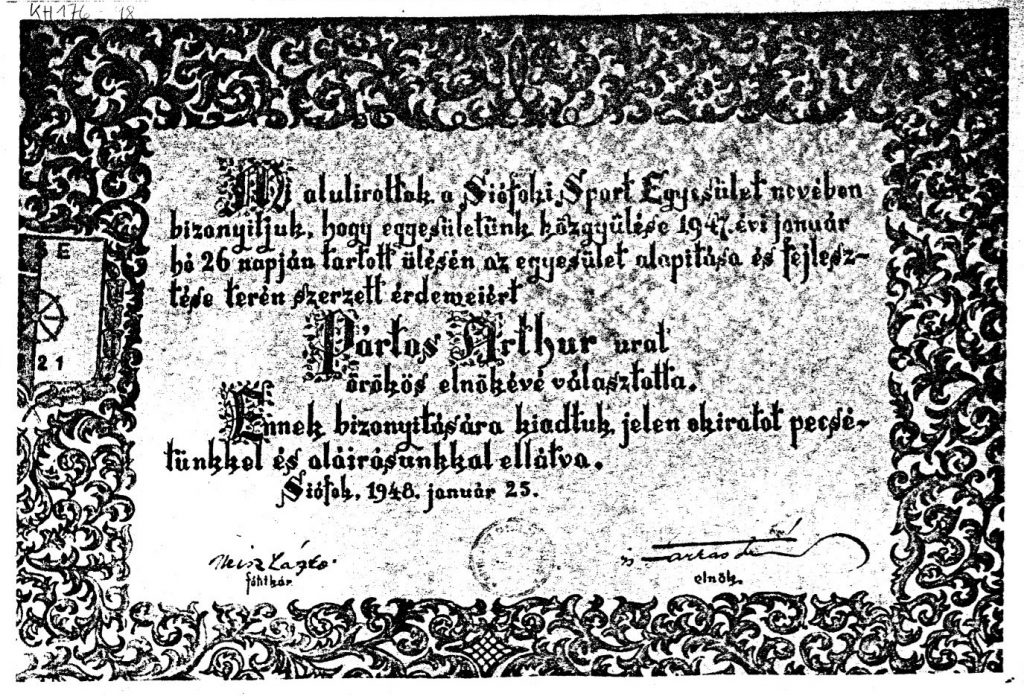 KH 176 18
Mi alulirottak a Siófoki Sport Egyesület nevében
bizonyitjuk, hogy egyesületünk közgyülése 1947. évi január
hó 26 napján tartott ülésén az egyesület alapitása és fejlesz-
tése terén szerzett érdemeiért
Pártos Arthur urat
örökös elnökévé választotta.
Ennek bizonyitására kiadtuk jelen okiratot pecsé-
tünkkel és aláirásunkkal ellátva.
Siófok, 1948. január 25.
E
21
Misz László
főtitkár
elnök.